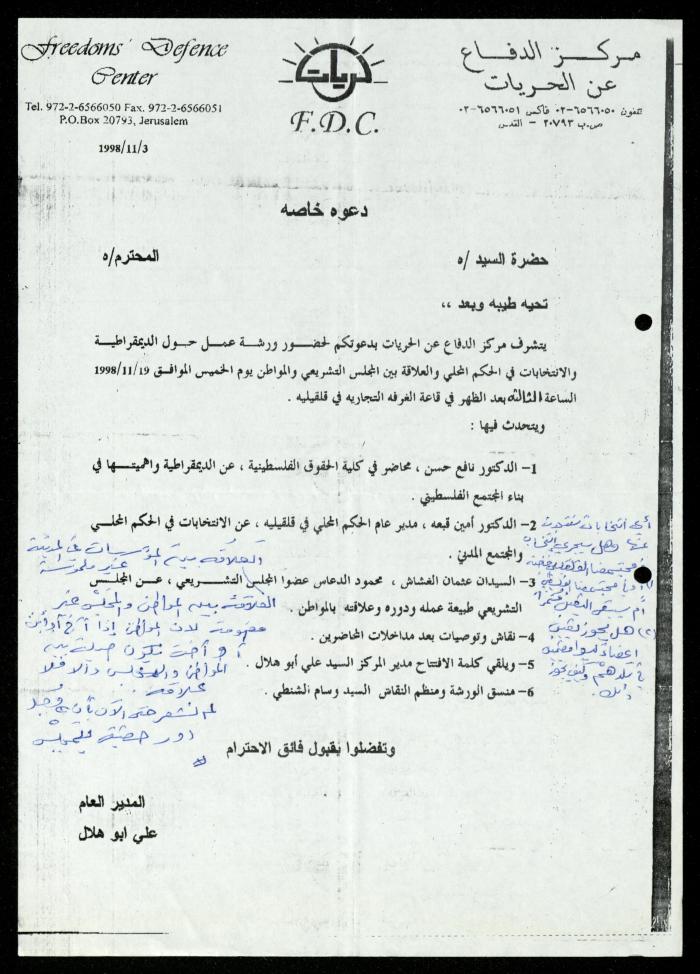 Freedoms' Defence
Center
Tel. 972-2-6566050 Fax. 972-2-6566051
P.O.Box 20793, Jerusalem
1998/11/3
حريات
F.D.C.
مركز الدفاع
عن الحريات
تلفون ٦٥٦٦٠٥٠-٠٢ فاكس ٦٥٦٦٠٥١-٠٢
ص.ب ٢٠٧٩٣ - القدس
دعوه خاصه
حضرة السيد /ه المحترم/ه
تحيه طيبه وبعد ،،
يتشرف مركز الدفاع عن الحريات بدعوتكم لحضور ورشة عمل حول الديمقراطية
والانتخابات في الحكم المحلي والعلاقة بين المجلس التشريعي والمواطن يوم الخميس الموافق 1998/11/19
الساعة الثالثه بعد الظهر في قاعة الغرفه التجاريه في قلقيليه .
ويتحدث فيها :
1- الدكتور نافع حسن ، محاضر في كلية الحقوق الفلسطينية ، عن الديمقراطية واهميتها في
بناء المجتمع الفلسطيني .
2- الدكتور أمين قبعه ، مدير عام الحكم المحلي في قلقيليه ، عن الانتخابات في الحكم المحلي
والمجتمع المدني .
3- السيدان عثمان الغشاش ، محمود الدعاس عضوا المجلس التشريعي ، عن المجلس
التشريعي طبيعة عمله ودوره وعلاقته بالمواطن .
4- نقاش وتوصيات بعد مداخلات المحاضرين .
5- ويلقي كلمة الافتتاح مدير المركز السيد علي أبو هلال .
6- منسق الورشة ومنظم النقاش السيد وسام الشنطي .
وتفضلوا بقبول فائق الاحترام
المدير العام
علي ابو هلال
أي انتخابات
وهل سيجري انتخاب
(٢) هل يجوز
العلاقة بين المؤسسات في المدينة
غير
العلاقة بين المواطن والمجلس غير
لان المواطن إذا
تكون صلة بين
المواطن والمجلس والا فلا
علاقة
لم نشعر حتى الآن بأن
دور حقيقي للمجلس